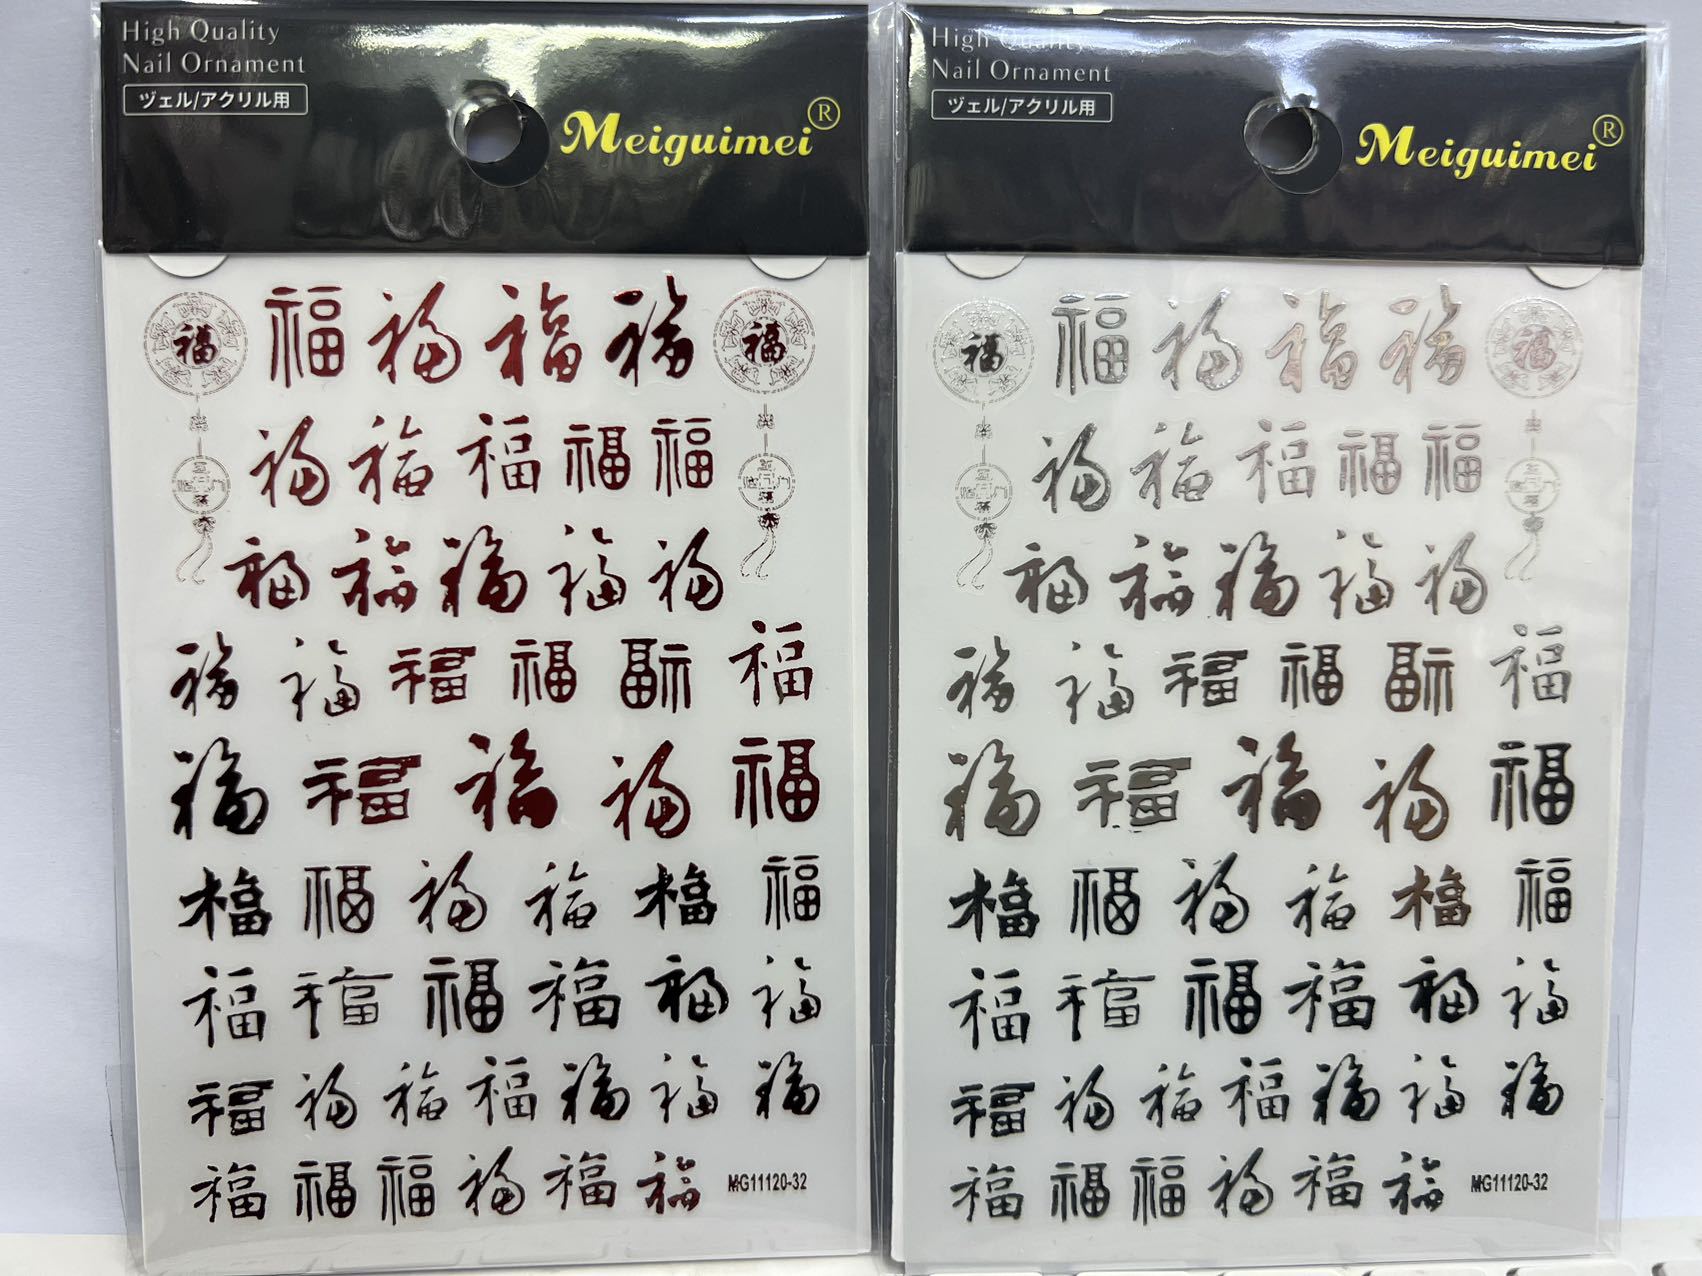 High Quality
Nail Ornament
ヅェル/アクリル用
Meiguimei®
福 福 福 福 福 福
福 福 福 福 福
福 福 福 福 福
福 福 福 福 福 福
福 福 福 福 福
福 福 福 福 福 福
福 福 福 福 福 福
福 福 福 福 福 福 福
福 福 福 福 福 福 MG11120-32
High Quality
Nail Ornament
ヅェル/アクリル用
Meiguimei®
福 福 福 福 福 福
福 福 福 福 福
福 福 福 福 福
福 福 福 福 福 福
福 福 福 福 福
福 福 福 福 福 福
福 福 福 福 福 福
福 福 福 福 福 福 福
福 福 福 福 福 福 MG11120-32